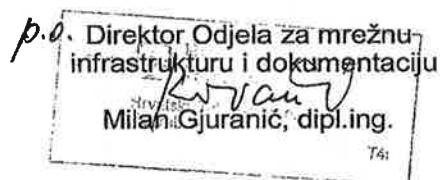 p.o. Direktor Odjela za mrežnu
infrastrukturu i dokumentaciju
Milan Gjuranić, dipl.ing.